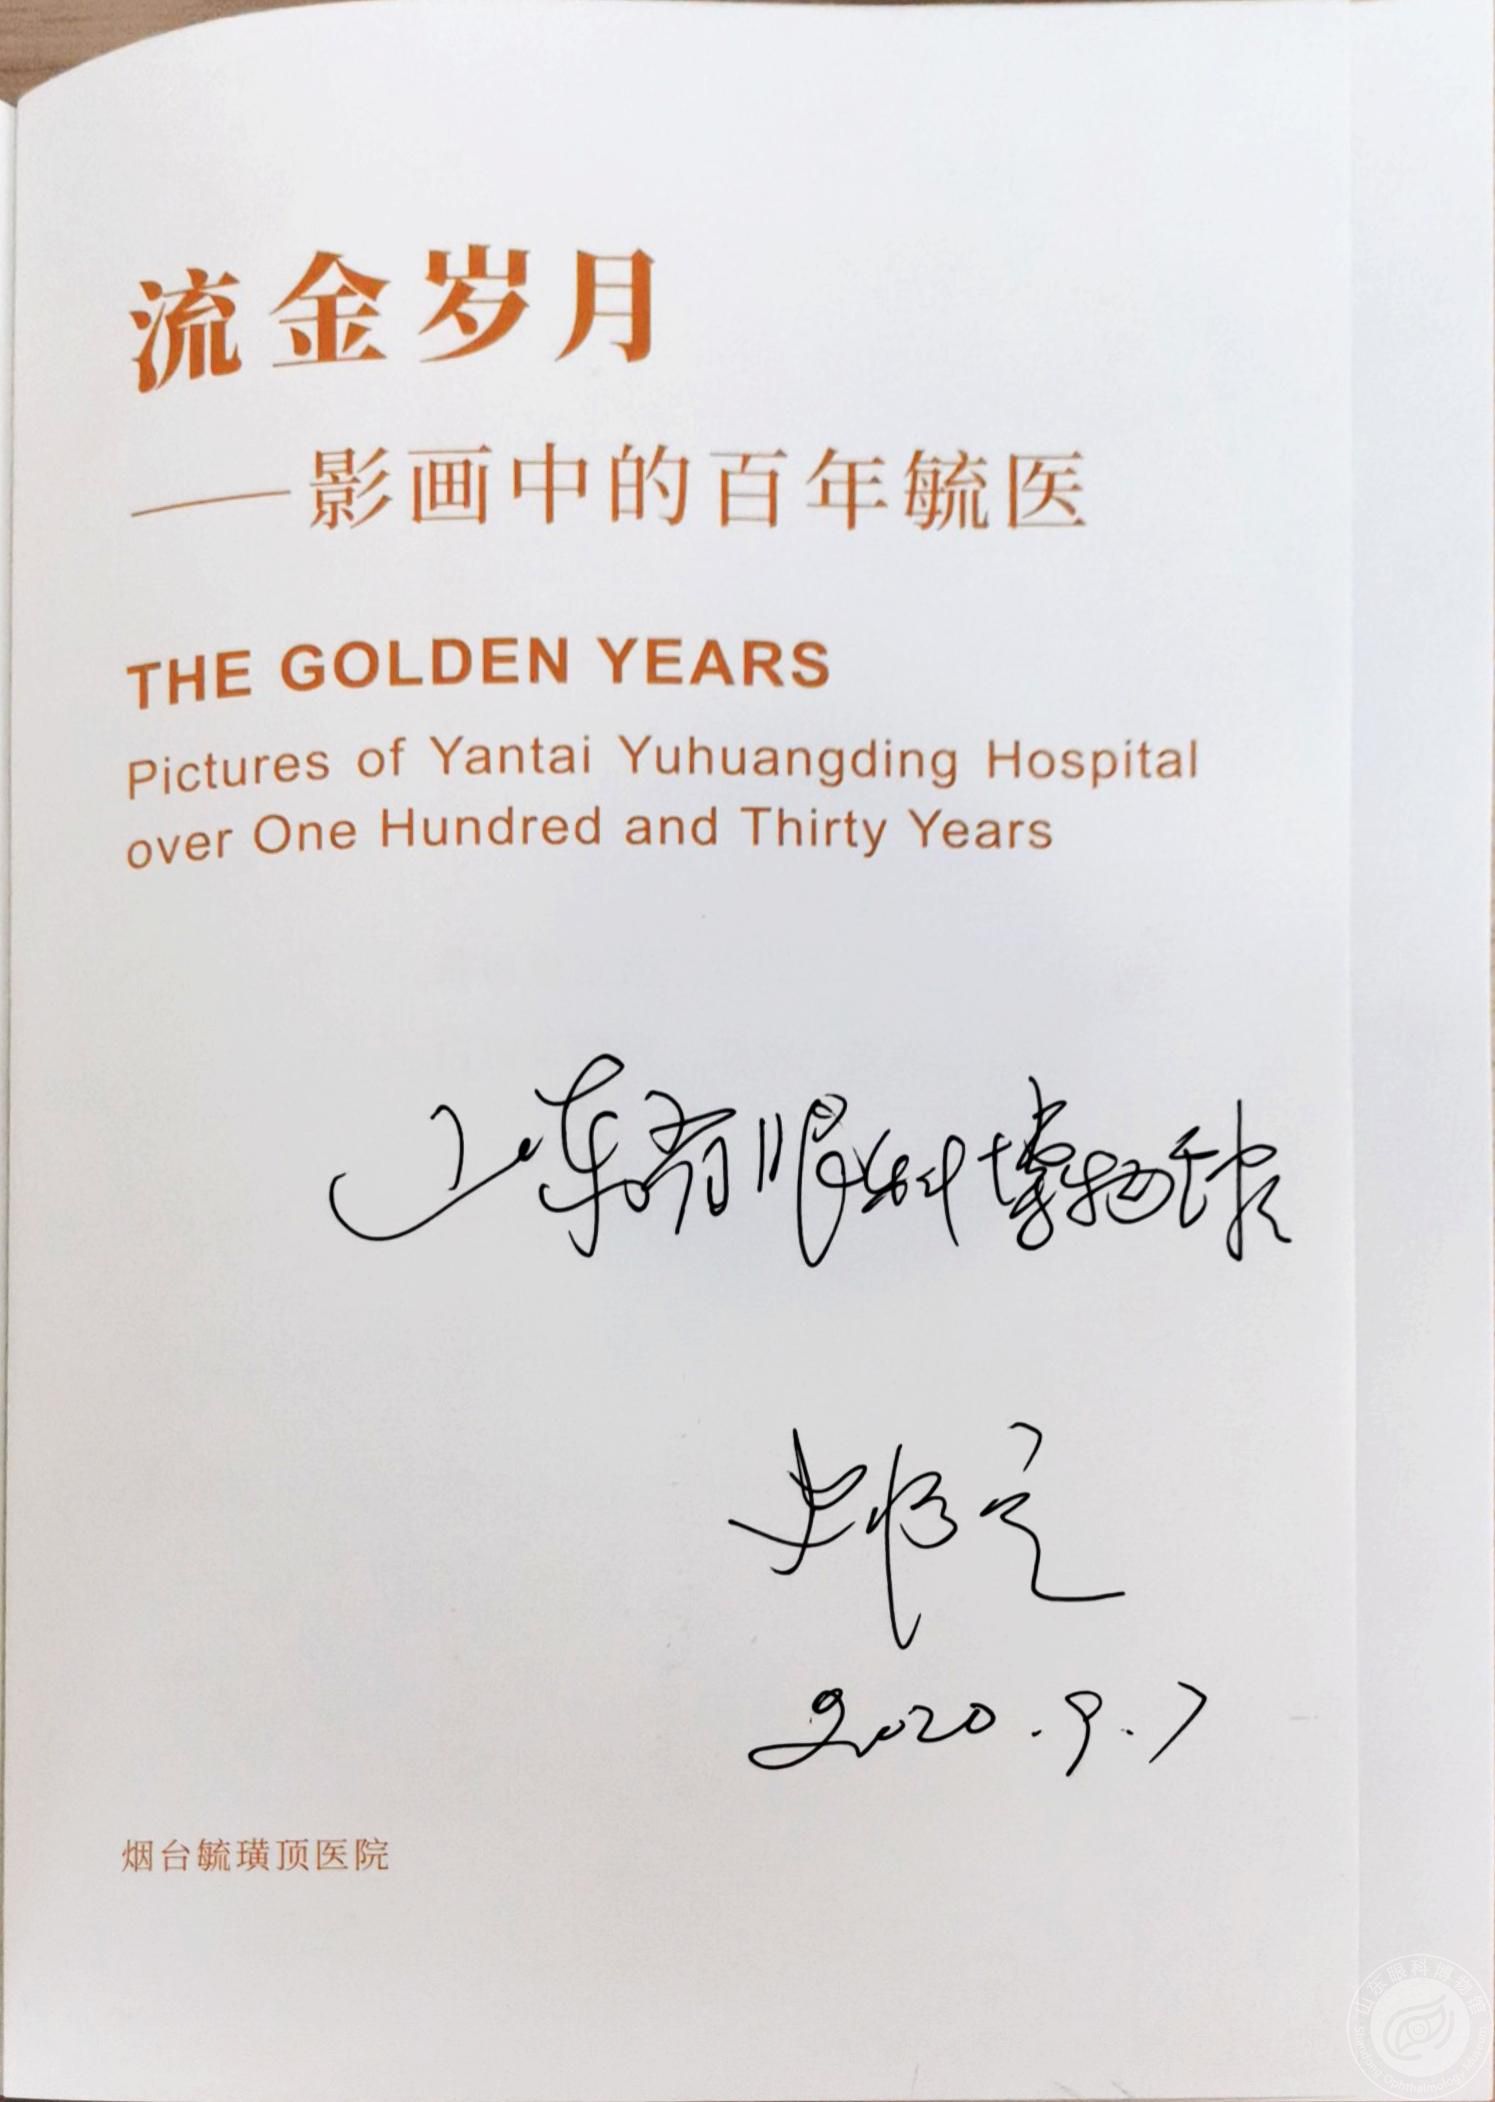 流金岁月
——影画中的百年毓医
THE GOLDEN YEARS
Pictures of Yantai Yuhuangding Hospital
over One Hundred and Thirty Years
山东省眼科博物馆
2020.9.7
烟台毓璜顶医院
山东眼科博物馆
Shandong Ophthalmology Museum